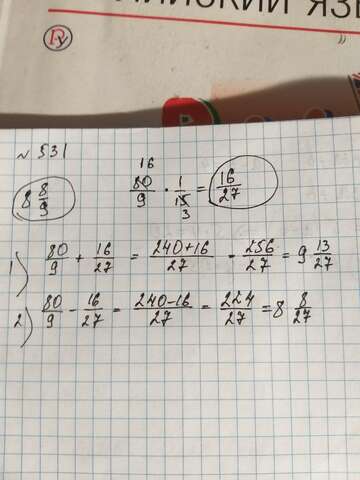 ЙСКИЙ ЯЗ
Ру
№ 531
8 8/9 80/9 · 1/15 = 16/27
16
3
1) 80/9 + 16/27 = 240+16/27 - 256/27 = 9 13/27
2) 80/9 - 16/27 = 240-16/27 = 224/27 = 8 8/27